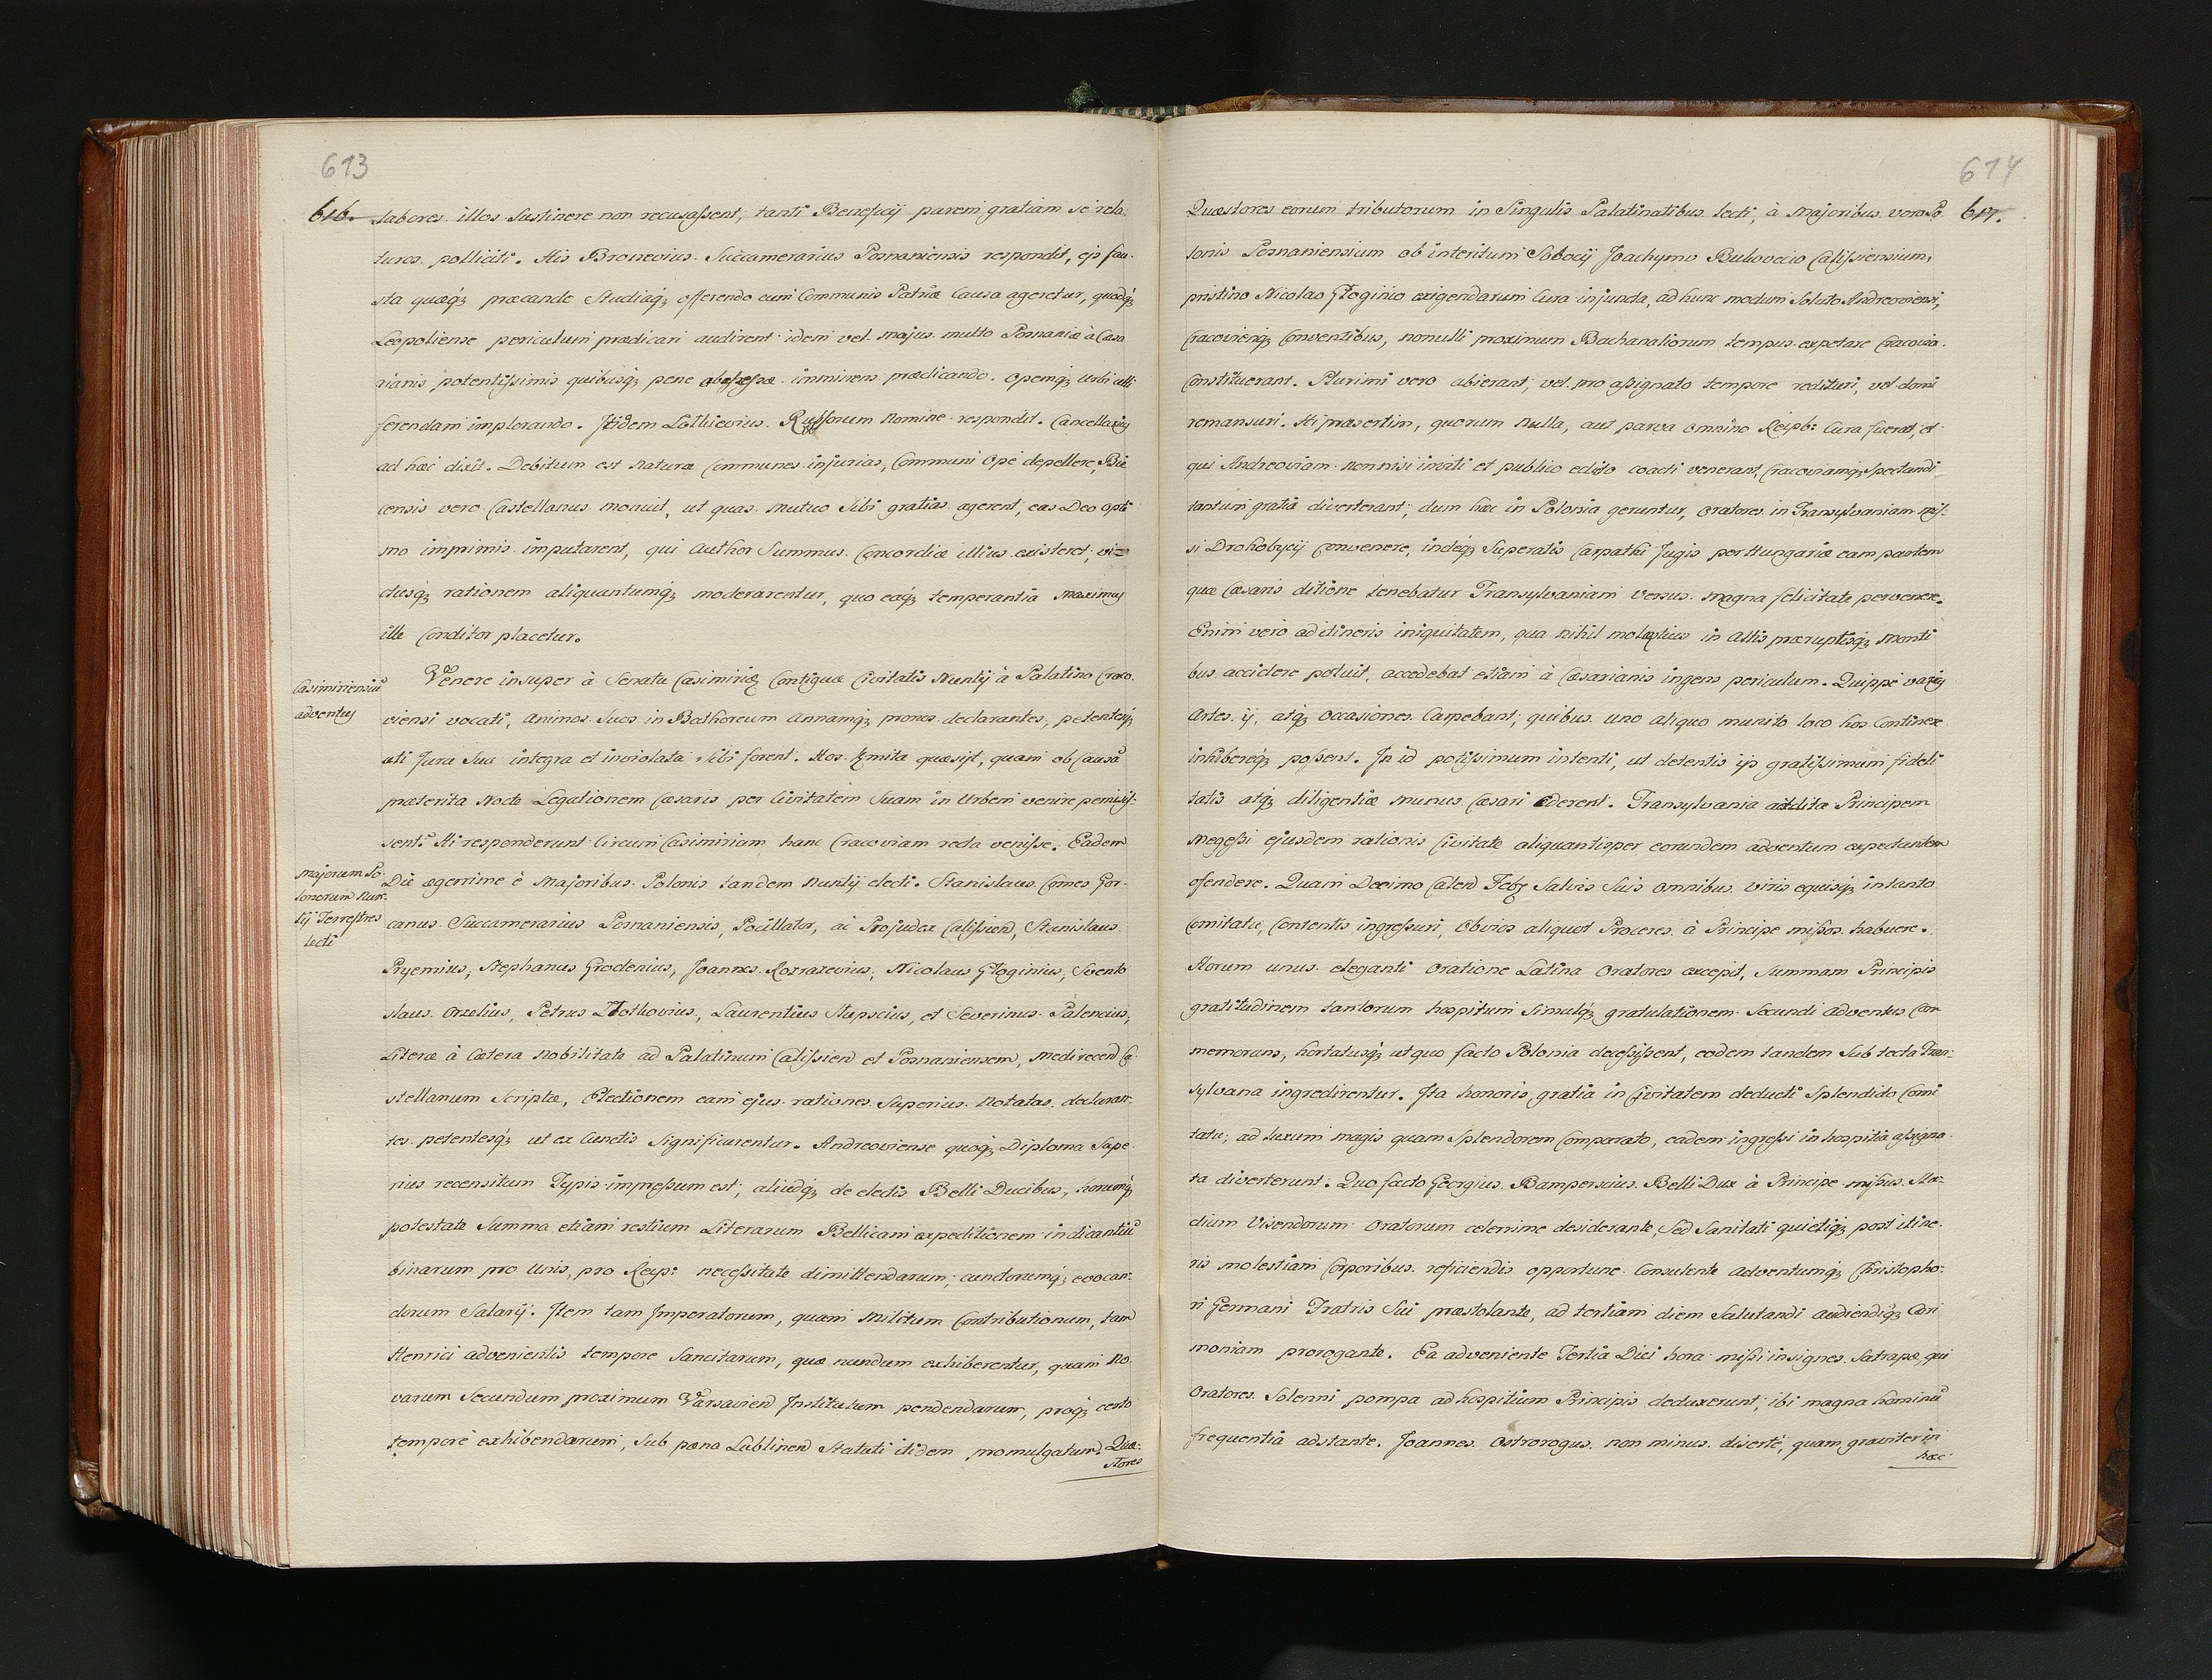 613
616.
labores illos sustinere non recusassent, tanti Beneficij parem gratiam se rela:
turos polliciti. His Bronevius Succamerarius Posnaniensis respondit, ejs fau-
sta quæq́; præcando Studiaq́; offerendo cum Communis Patriæ Causa ageretur, quodq́;
Leopoliense periculum prædicari audirent idem vel majus multo Posnaniæ à Cæsa
rianis potentissimis quibusq́; pene obsessæ imminens prædicando. opemq́; Urbi alli-
ferendam implorando. Itidem Lathievius Russorum Nomine respondit. Cancellarius
ad hæc dixit. Debitum est Naturæ Communes injurias, Communi Ope depellere, Bie
censis vero Castellanus monuit, ut quas Mutuo Sibi gratias agerent, eas Deo opti
mo imprimis imputarent, qui Author Summus Concordiæ illius existeret, vi=
ctusq́; rationem aliquantumq́; moderarentur, quo eaq́; temperantia Maximus
ille Conditor placetur.
Casimiriensiū
adventus
Venere insuper à Senatu Casimiriæ Contiguæ Civitatis Nuntij à Palatino Craco-
viensi vocati, animos Suos in Bathoreum Annamq́; pronos declarantes, petentesq́;
uti Jura Sua integra et inviolata Sibi forent. Hos Zmita quæsijt, quam ob Causā
præterita Nocte Legationem Cæsaris per Civitatem Suam in Urbem venire permisis-
sent? Hi responderunt Circum Casimiriam hanc Cracoviam recta venisse. Eadem
Majorum Po
lonorum Nun-
tij Terrestres
lecti
Die ægerrime è Majoribus Polonis tandem Nuntij electi. Stanislaus Comes Gor-
canus Succamerarius Posnaniensis, Pocillator, ac Projudex Calissien, Stanislaus
Pryemius, Stephanus Grodenius, Joannes Rozrazevius, Nicolaus Głoginius, Svento
slaus Orzelius, Petrus Zlothovius, Laurentius Stupscius, et Severinus Palencius,
Literæ à Cætera Nobilitate ad Palatinum Calissien et Posnaniensem, Medirecen Ca-
stellanum Scriptæ, Electionem eam ejus rationes Superius Notatas declaran-
tes petentesq́; ut ex Cunctis Significarentur. Andreoviense quoq́; Diploma Supe-
rius recensitum Typis impressum est, aliudq́; de electis Belli Ducibus, horumq́;
potestate Summa etiam restium Literarum Bellicam expeditionem indicantiū
binarum pro Unis, pro Reip: necessitate dimittendarum, cunctorumq́; evocan-
dorum Salarij. Item tam Imperatorum, quam Militum Contributionum, tam
Henrici advenientis tempore Sancitarum, quæ nundum exhiberentur, quam No-
varum Secundum proximum Varsavien Institutum pendendarum, proq́; certo
tempore exhibendarum, Sub pæna Lublinen Statuti itidem promulgatum. Quæ-
stores
614
617.
Quæstores eorum tributorum in Singulis Palatinatibus lecti, à Majoribus vero Po
lonis Posnaniensium ob interitum Sobocij Joachymo Bukovecio Calissiensium,
pristino Nicolao Głoginio exigendarum Cura injuncta, ad hunc modum Soluto Andreoviensi,
Cracovienq́; Conventibus, nonulli proximum Bachanaliorum tempus expetare Cracoviæ
Constituerant. Plurimi vero abierant, vel pro assignato tempore redituri, vel domi
remansuri. Hi præsertim, quorum Nulla, aut parva omnino Reipb: Cura fuerat, et
qui Andreoviam nonnisi inviti et publico edicto coacti venerant, Cracoviamq́; Spectandi
tantum gratia diverterant, dum hæc in Polonia geruntur, Oratores in Transylvaniam mis-
si Drohobycij Convenere, indeq́; Superatis Carpathi Jugis per Hungariæ eam partem
quæ Cæsaris ditione tenebatur Transylvaniam versus Magna felicitate pervenere.
Enim vero ad itineris iniquitatem, qua nihil molestius in Altis præruptisq́; Monti
bus accidere potuit, accedebat etiam à Cæsarianis ingens periculum. Quippe varias
Artes ij, atq́; Occasiones Carpebant, quibus uno aliquo munito loco hos Continere
inhibereq́; possent. In id potissimum intenti, ut detentis ijs gratissimum fideli
tatis atq́; diligentiæ Munus Cæsari ederent. Transylvania addita Principem
Megessi ejusdem rationis Civitate aliquantisper eorundem adventum expectantem
ofendere. Quam Decimo Calend Febr Salvis Suis omnibus viris equisq́; in tanto
Comitatu, Contentis ingressuri, Obvios aliquot Proceres à Principe missos habuere.
Horum unus eleganti Oratione Latina Oratores excepit, Summam Principis
gratitudinem tantorum hospitum Simulq́; gratulationem Secundi Adventus Com
memorans, hortatusq́; ut quo facto Polonia decessissent, eodem tandem Sub tecta Tran-
sylvana ingredirentur. Ita honoris gratia in Civitatem deducti Splendido Comi
tatu, ad luxum magis quam Splendorem Comparato, eadem ingressi in hospitia assigna-
ta diverterunt. Quo facto Georgius Bamperscius Belli Dux à Principe missus Stu-
dium Visendorum Oratorum celerrime desiderante, Sed Sanitati quietiq́; post itine-
ris molestiam Corporibus reficiendis opportune Consulente Adventumq́; Christopho-
ri Germani Fratris Sui præstolante, ad tertiam diem Salutandi audiendiq́; Ceri
moniam prorogante. Ea adveniente Tertia Diei hora missi insignes Satrapæ, qui
Oratores Solenni pompa ad hospitium Principis deduxerunt, ibi magna hominū
frequentia adstante. Joannes Ostrorogus non minus diserte, quam graviter in
hæc